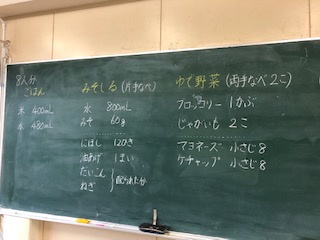 8人分
ごはん
米 400mL
水 480mL
みそしる (片手なべ)
水 800mL
みそ 60g
にぼし 12ひき
油あげ 1まい
だいこん
ねぎ
配られた分
ゆで野菜 (両手なべ2こ)
ブロッコリー 1かぶ
じゃがいも 2こ
マヨネーズ 小さじ8
ケチャップ 小さじ8